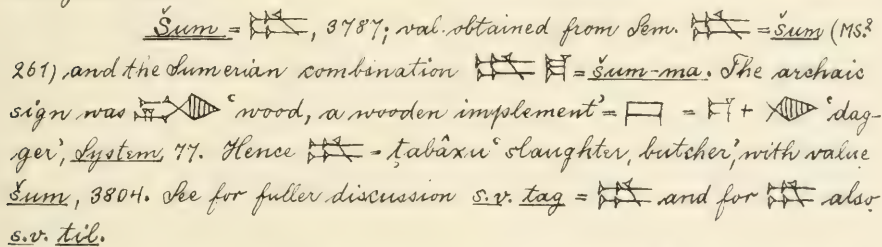 Šum = 𒋳, 3787; val. obtained from Sem. 𒋳 = šum (MS.²
261) and the Sumerian combination 𒋳 𒈠 = šum-ma. The archaic
sign was 'wood, a wooden implement' = + 'dag-
ger', System, 77. Hence 𒋳 = ṭabâxu 'slaughter, butcher', with value
šum, 3804. See for fuller discussion s.v. tag = 𒋳 and for 𒋳 also
s.v. til.